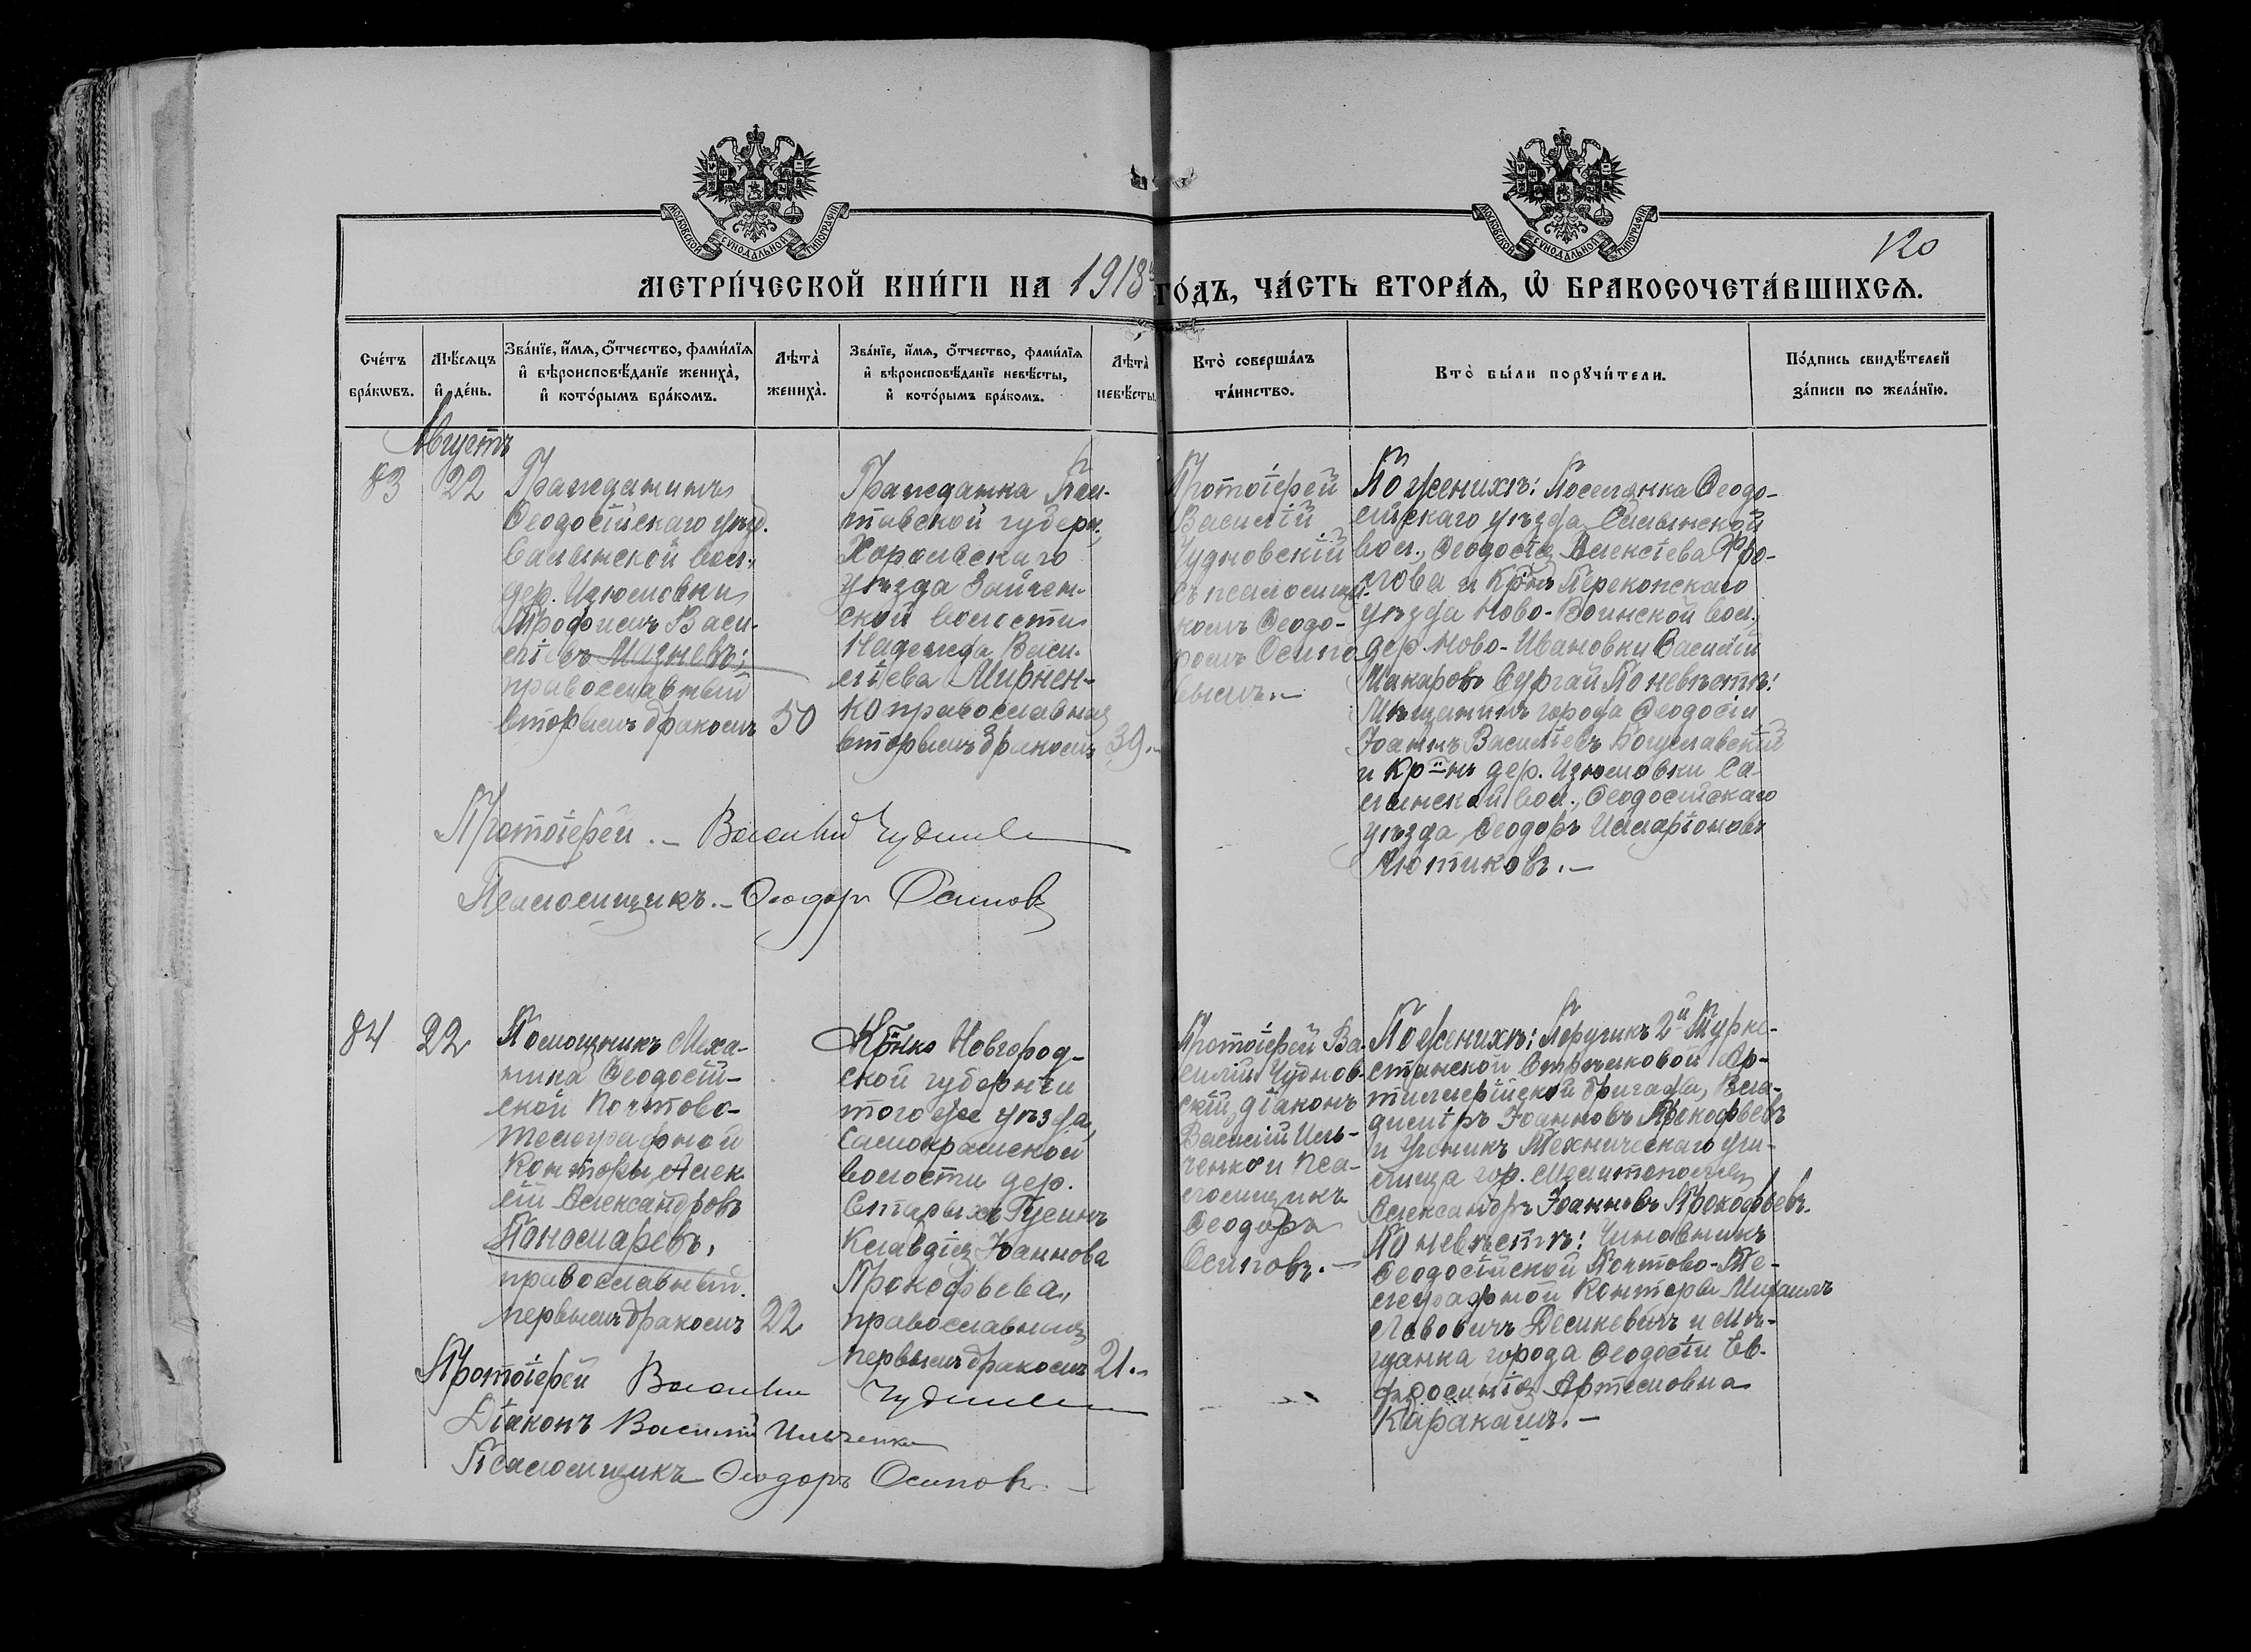 МОСКОВСКОЙ СѴНОДАЛЬНОЙ ТИПОГРАФІИ
МОСКОВСКОЙ СѴНОДАЛЬНОЙ ТИПОГРАФІИ
120
МЕТРИ́ЧЕСКОЙ КНИ́ГИ НА 1918й ГО́ДЪ, ЧА́СТЬ ВТОРА́Ѧ, Ѡ҆ БРАКОСОЧЕТА́ВШИХСѦ.
Сче́тъ бра́кѡвъ.
Мѣ́сѧцъ и҆ де́нь.
Зва́нїе, и҆́мѧ, ѻ҆́тчество, фами́лїѧ и҆ вѣроисповѣ́данїе жениха̀, и҆ кото́рымъ бра́комъ.
Лѣта̀ жениха̀.
Зва́нїе, и҆́мѧ, ѻ҆́тчество, фами́лїѧ и҆ вѣроисповѣ́данїе невѣ́сты, и҆ кото́рымъ бра́комъ.
Лѣта̀ невѣ́сты.
Кто̀ соверша́лъ та́инство.
Кто̀ бы́ли порꙋчи́тели.
По́дпись свидѣ́телей за́писи по жела́нїю.
Августъ
83
22
Гражданинъ
Ѳеодосійскаго уѣзд.
Салынской вол.
дер. Изюмовки
Трофимъ Васи-
ліевъ Мазневъ;
православный
вторымъ бракомъ
50
Гражданка Пол-
тавской губерн.
Хорольскаго
уѣзда Зайчен-
ской волости
Надежда Васи-
ліева Мирнен-
ко православная
вторымъ бракомъ
39.-
Протоіерей
Василій
Чудновскій
съ псаломщи-
комъ Ѳеодо-
ромъ Осипо-
вымъ.-
По женихѣ: Поселянка Ѳеодо-
сійскаго уѣзда, Салынской
вол., Ѳеодосія Алексіева Фро-
лова и Кр-нъ Перекопскаго
уѣзда Ново-Воинской вол.
дер. Ново-Ивановки Василій
Макаровъ Сургай По невѣстѣ:
Мѣщанинъ города Ѳеодосіи
Іоаннъ Василіевъ Богуславскій
и Кр-нъ дер. Изюмовки Са-
лынской вол., Ѳеодосійскаго
уѣзда Ѳеодоръ Иларіоновъ
Лютиковъ.-
Протоіерей.- Василій Чудновск
Псаломщикъ.- Ѳеодоръ Осиповъ
84
22
Помощникъ Меха-
ника Ѳеодосій-
ской Почтово-
телеграфной
Конторы, Алек-
сій Александровъ
Пономаревъ,
православный.
первымъ бракомъ
22
Кр-нка Новгород-
ской губерніи
того же уѣзда,
Самокражской
волости дер.
Старыхъ Гусинъ
Клавдія Іоаннова
Прокофьева,
православная
первымъ бракомъ
21.-
Протоіерей Ва-
силій Чуднов-
скій, діаконъ
Василій Иль-
ченко и Пса-
ломщикъ
Ѳеодоръ
Осиповъ.-
По женихѣ: Поручикъ 2й Турке-
станской Стрѣлковой Ар-
тиллерійской бригады, Вла-
диміръ Іоанновъ Прокофьевъ
и Ученикъ Техническаго учи-
лища гор. Мелитополя
Александръ Іоанновъ Прокофьевъ.
По невѣстѣ: Чиновникъ
Ѳеодосійской Почтово-Те-
леграфной Конторы Михаилъ
Львовичъ Десикевичъ и Мѣ-
щанка города Ѳеодосіи Ев-
фросинія Артемовна
Каракашъ.-
Протоіерей Василій Чудновск
Діаконъ Василій Ильченко
Псаломщикъ Ѳеодоръ Осиповъ.-